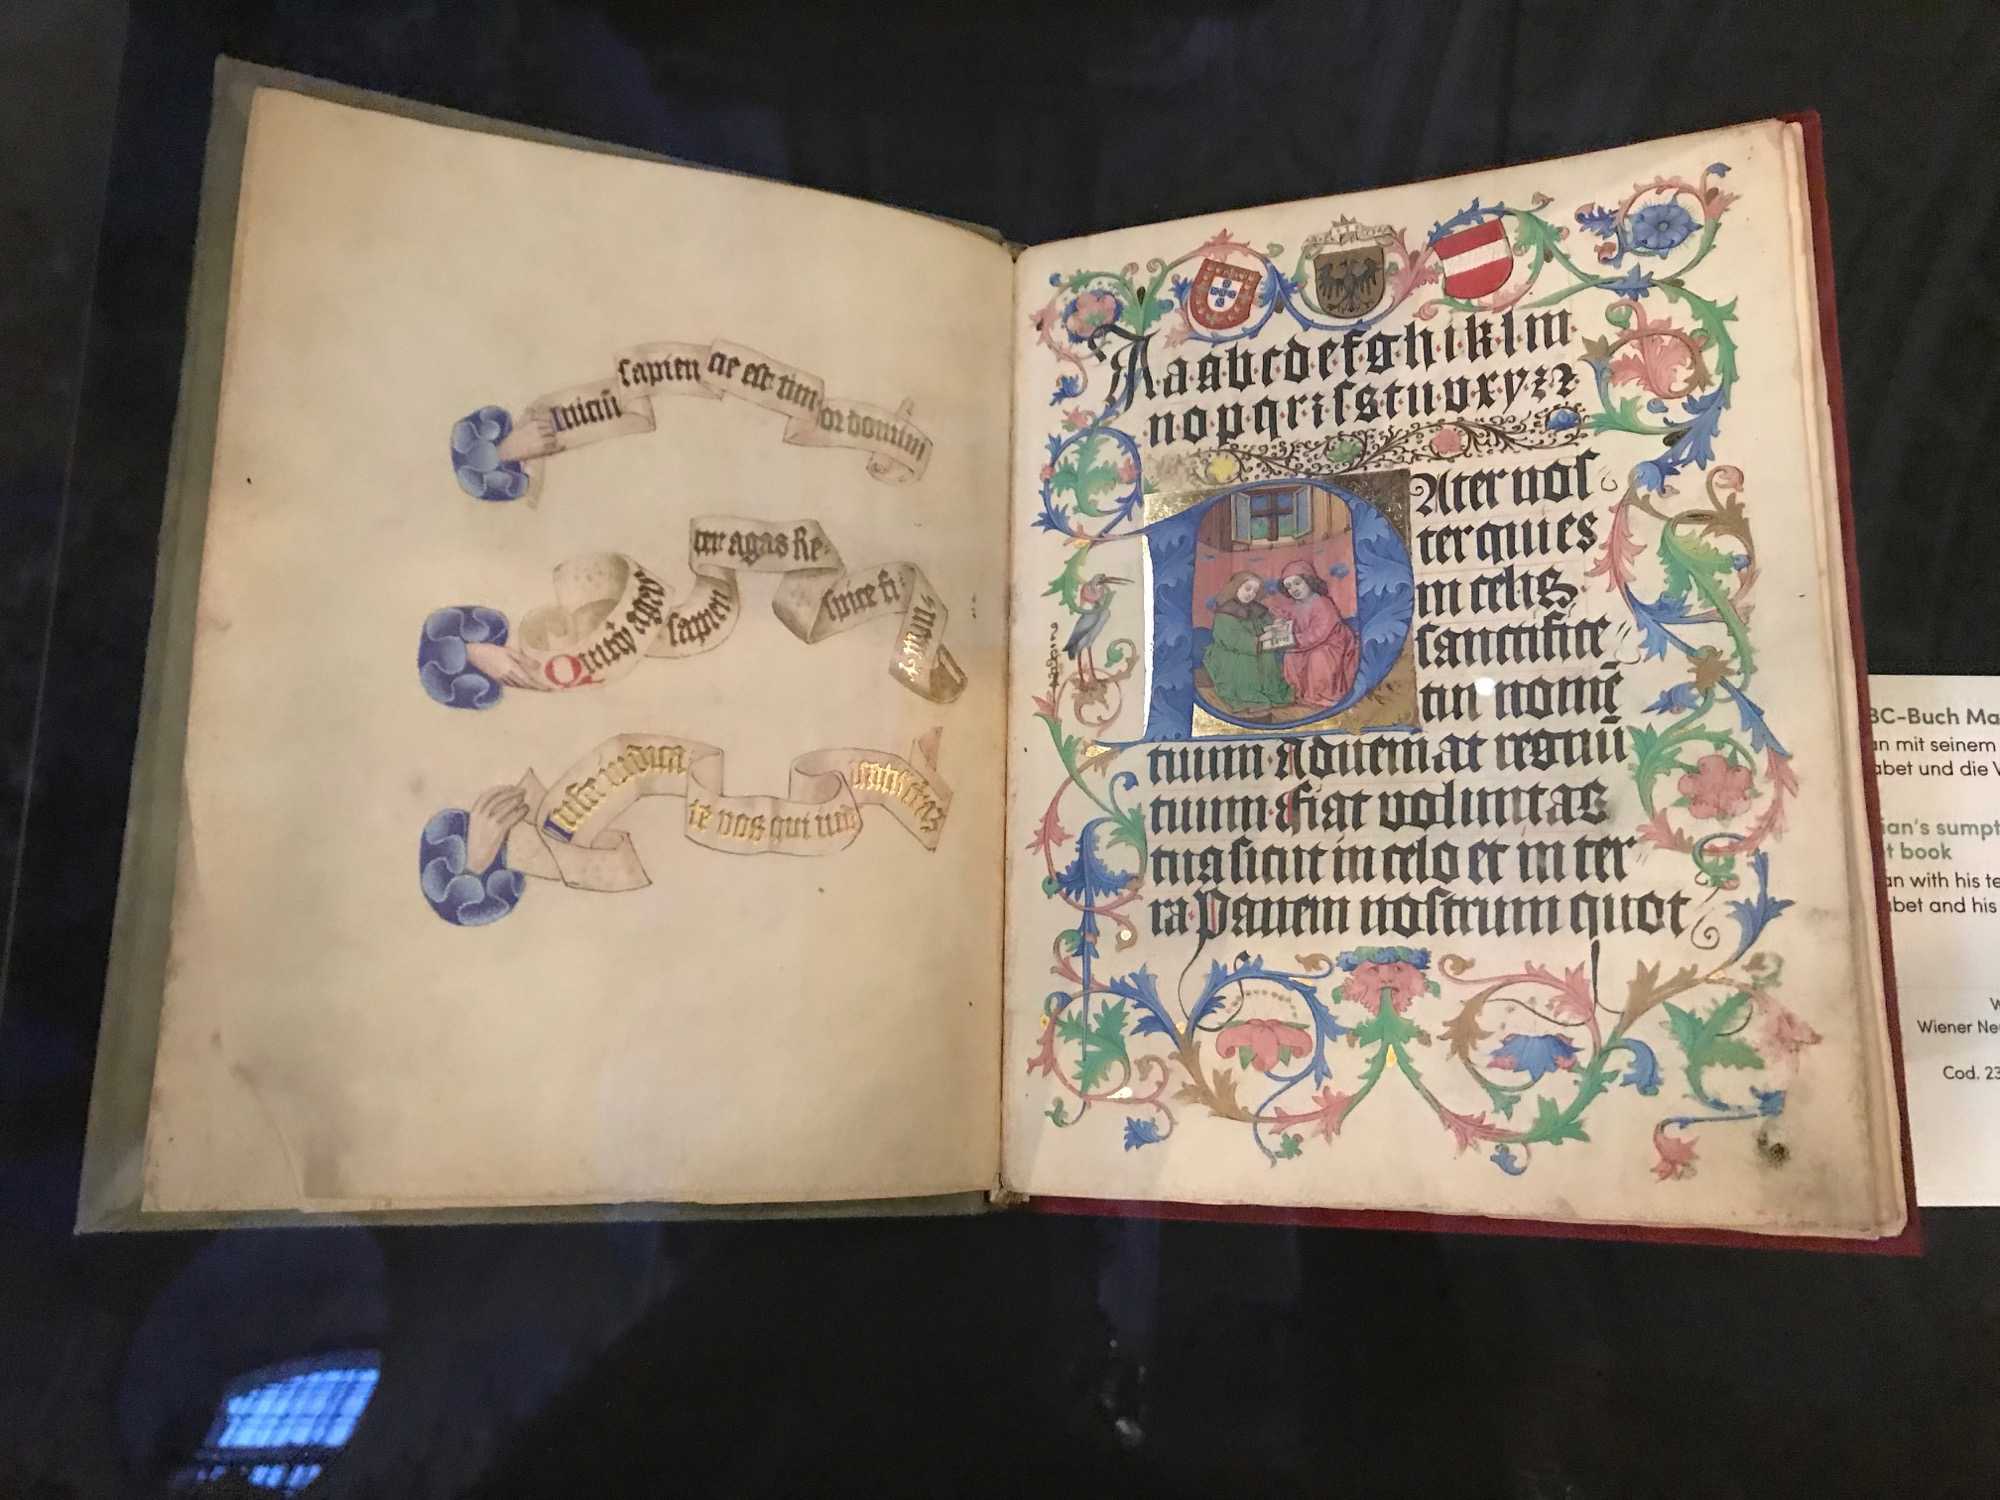 Iniciū sapien cie est tim or domini
Quitq̄ agis sapien ter agas Re- spice fi- nem
Iuste iudica te vos qui
A a a b c d e f g h i k l m
n o p q r ꝛ i ſ s t u v x y z
Pater nos
ter qui es
in celis
sanctifice
tur nomē
tuum Adueniat regnū
tuum fiat voluntas
tua sicut in celo et in ter
ra Panem nostrum quot
BC-Buch Ma
an mit seinem
abet und die V
ian's sumpt
t book
an with his te
abet and his
W
Wiener Neu
Cod. 23